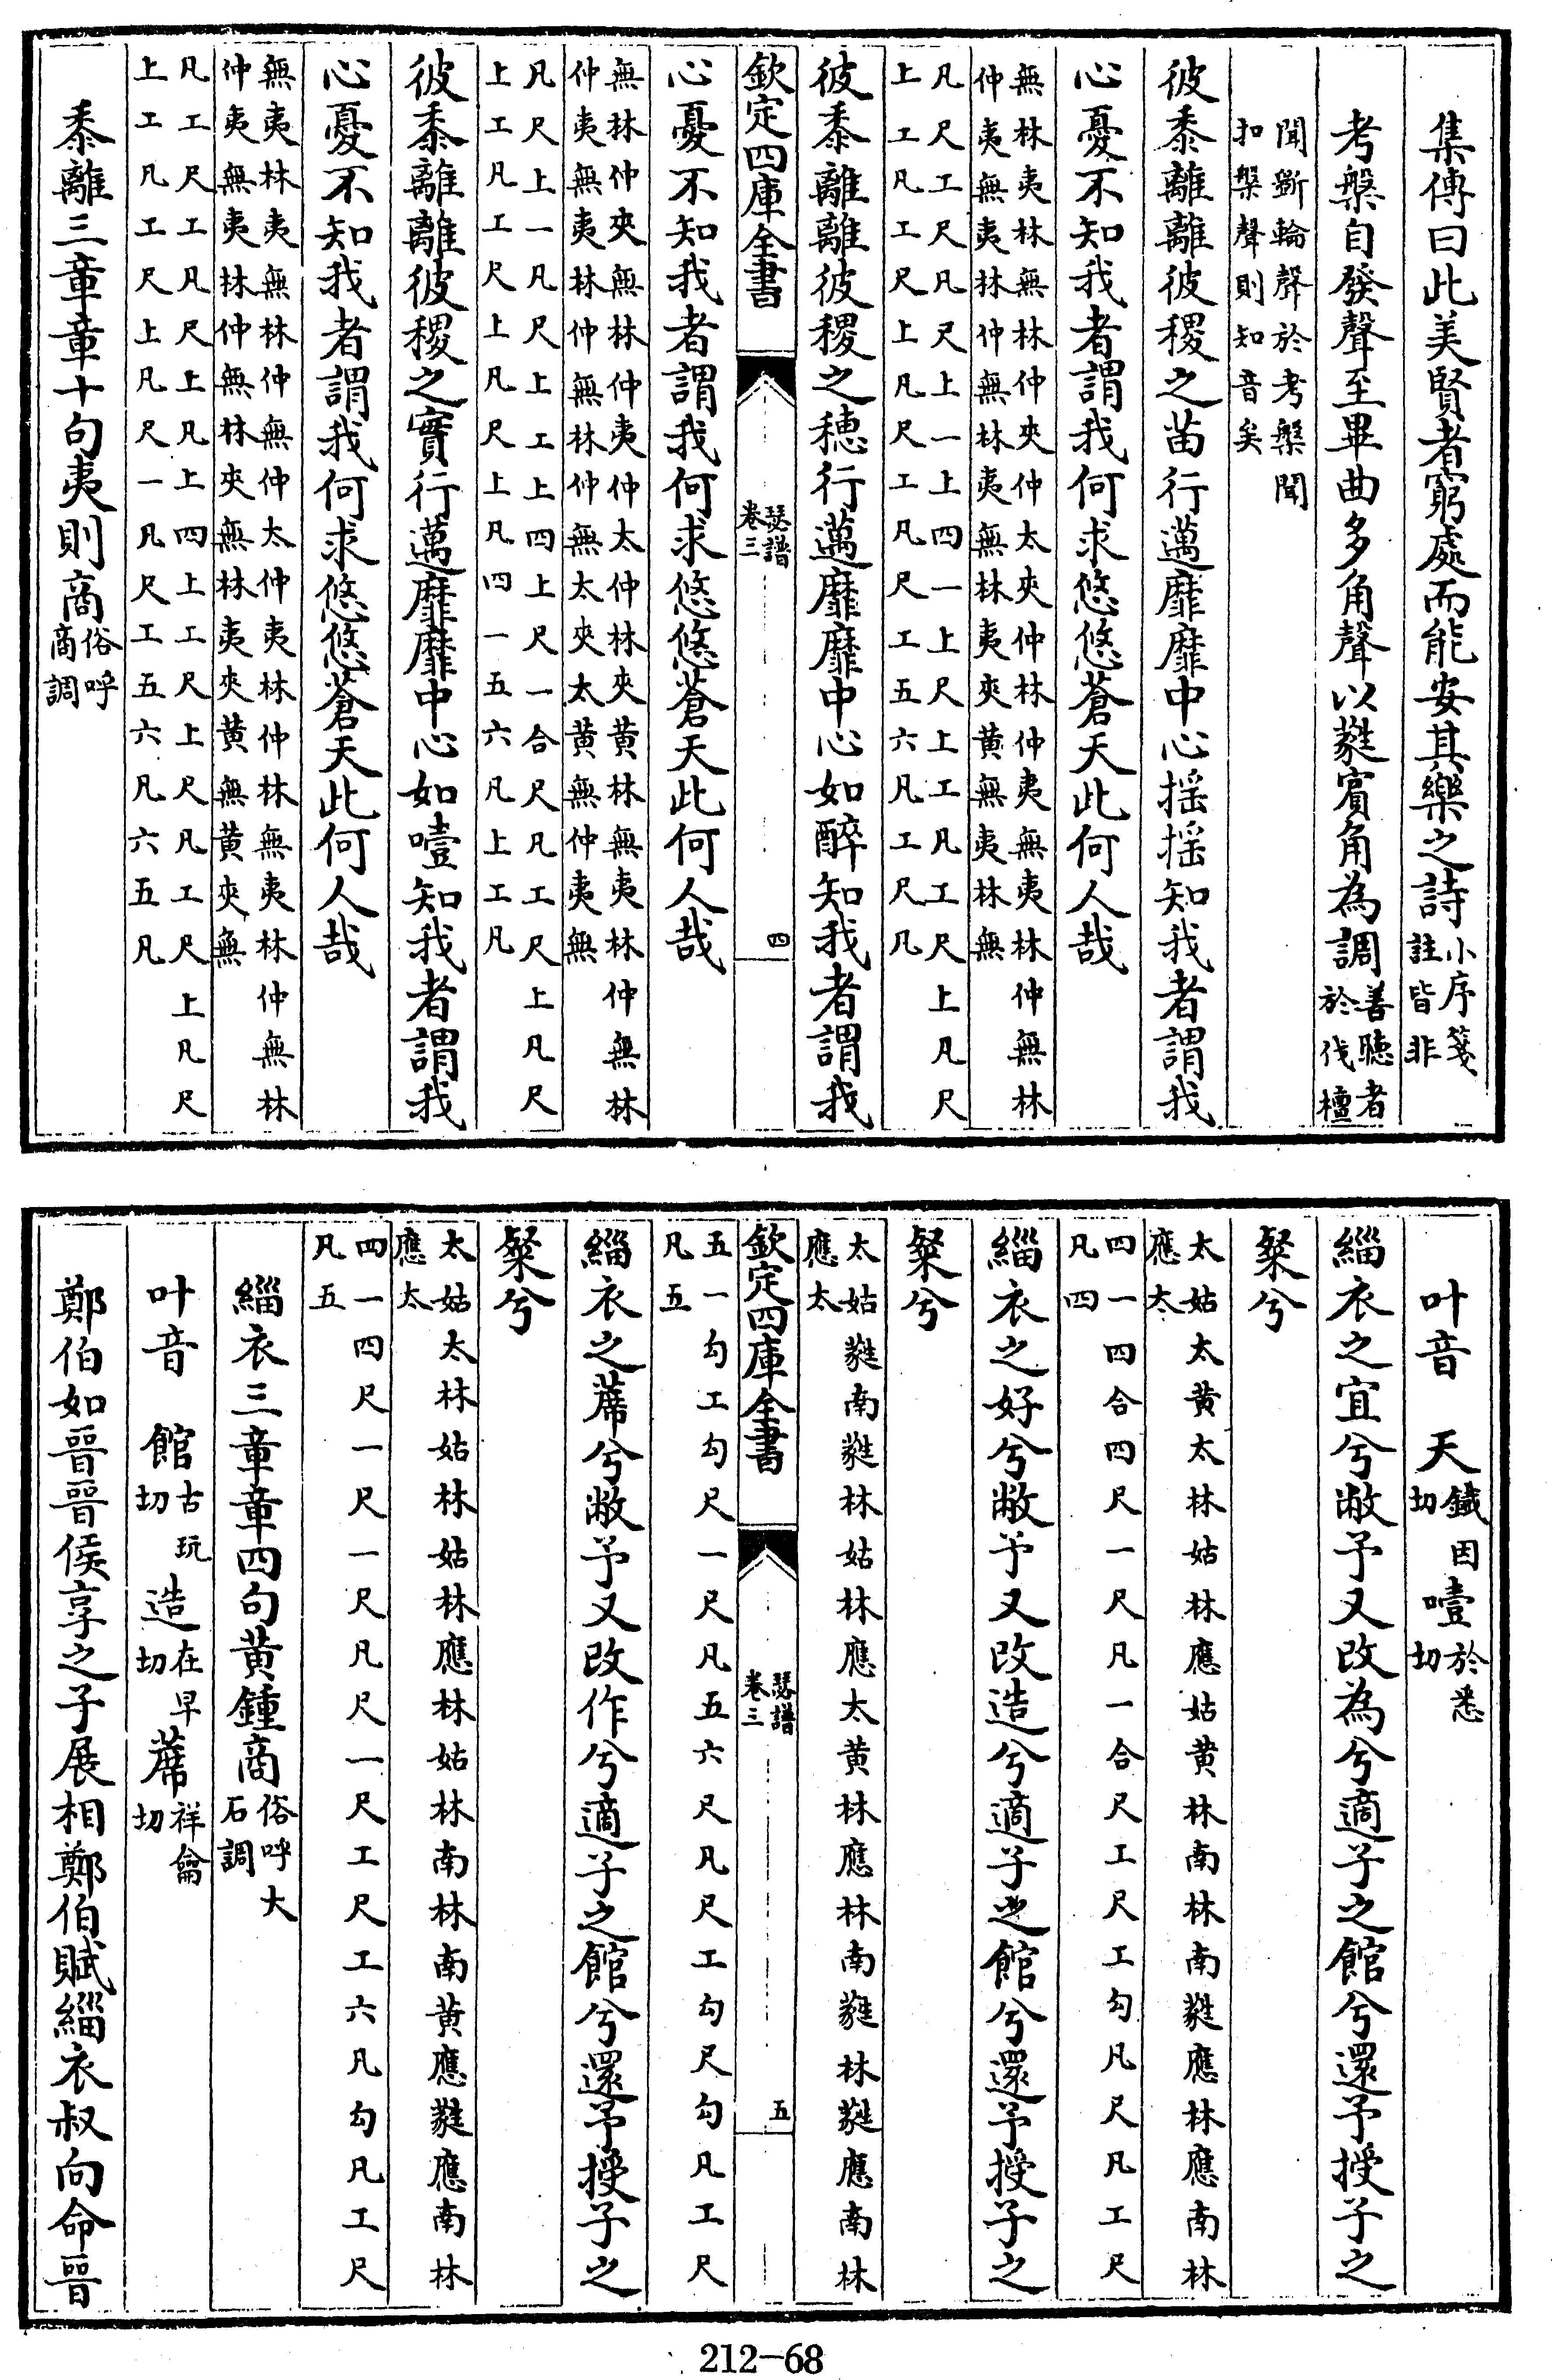 集傳曰此美賢者窮處而能安其樂之詩小序箋註皆非
考槃自發聲至畢曲多角聲以蕤賓角為調善聽者於伐檀
聞斵輪聲於考槃聞
扣槃聲則知音矣
彼黍離離彼稷之苗行邁靡靡中心揺揺知我者謂我
心憂不知我者謂我何求悠悠蒼天此何人哉
無林夷林無林仲夾仲太夾仲林仲夷無夷林仲無林
仲夷無夷林仲無林夷無林夷夾黄無夷林無
凡尺工尺凡尺上一上四一上尺上工凡工尺上凡尺
上工凡工尺上凡尺工凡尺工五六凡工尺凡
彼黍離離彼稷之穂行邁靡靡中心如醉知我者謂我
欽定四庫全書 瑟譜卷三 四
心憂不知我者謂我何求悠悠蒼天此何人哉
無林仲夾無林仲夷仲太仲林夾黄林無夷林仲無林
仲夷無夷林仲無林仲無太夾太黄無仲夷無
凡尺上一凡尺上工上四上尺一合尺凡工尺上凡尺
上工凡工尺上凡尺上凡四一五六凡上工凡
彼黍離離彼稷之實行邁靡靡中心如噎知我者謂我
心憂不知我者謂我何求悠悠蒼天此何人哉
無夷林夷無林仲無仲太仲夷林仲林無夷林仲無林
仲夷無夷林仲無林夾無林夷夾黄無黄夾無
凡工尺工凡尺上凡上四上工尺上尺凡工尺上凡尺
上工凡工尺上凡尺一凡尺工五六凡六五凡
黍離三章章十句夷則商俗呼商調
叶音 天鐵因切 噎於悉切
緇衣之宜兮敝予又改為兮適子之館兮還予授子之
粲兮
太姑太黄太林姑林應姑黄林南林南蕤應林應南林
應太
四一四合四尺一尺凡一合尺工尺工勾凡尺凡工尺
凡四
緇衣之好兮敝予又改造兮適子之館兮還予授子之
粲兮
太姑蕤南蕤林姑林應太黄林應林南蕤林蕤應南林
應太
欽定四庫全書 瑟譜卷三 五
五一勾工勾尺一尺凡五六尺凡尺工勾尺勾凡工尺
凡五
緇衣之蓆兮敝予又改作兮適子之館兮還予授子之
粲兮
太姑太林姑林姑林應林姑林南林南黄應蕤應南林
應太
四一四尺一尺一尺凡尺一尺工尺工六凡勾凡工尺
凡五
緇衣三章章四句黄鍾商俗呼大石調
叶音 館古玩切 造在早切 蓆祥龠切
鄭伯如晉晉侯享之子展相鄭伯賦緇衣叔向命晉
212-68